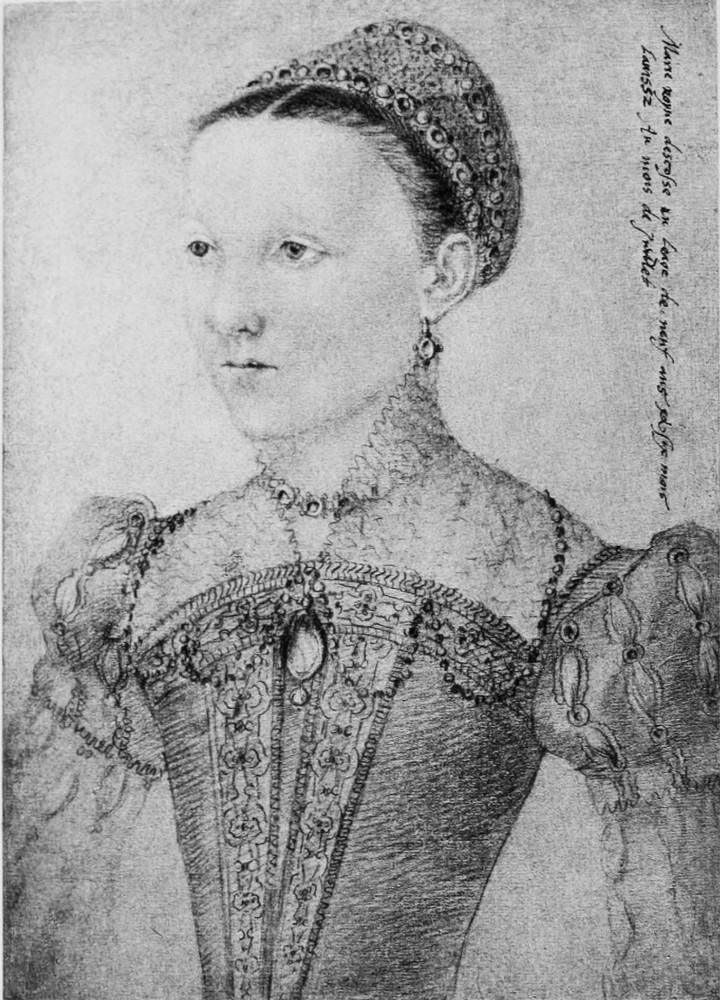 Marie royne descosse en leage de neuf ans et six mois
Lan 1552 Au mois de Juillet